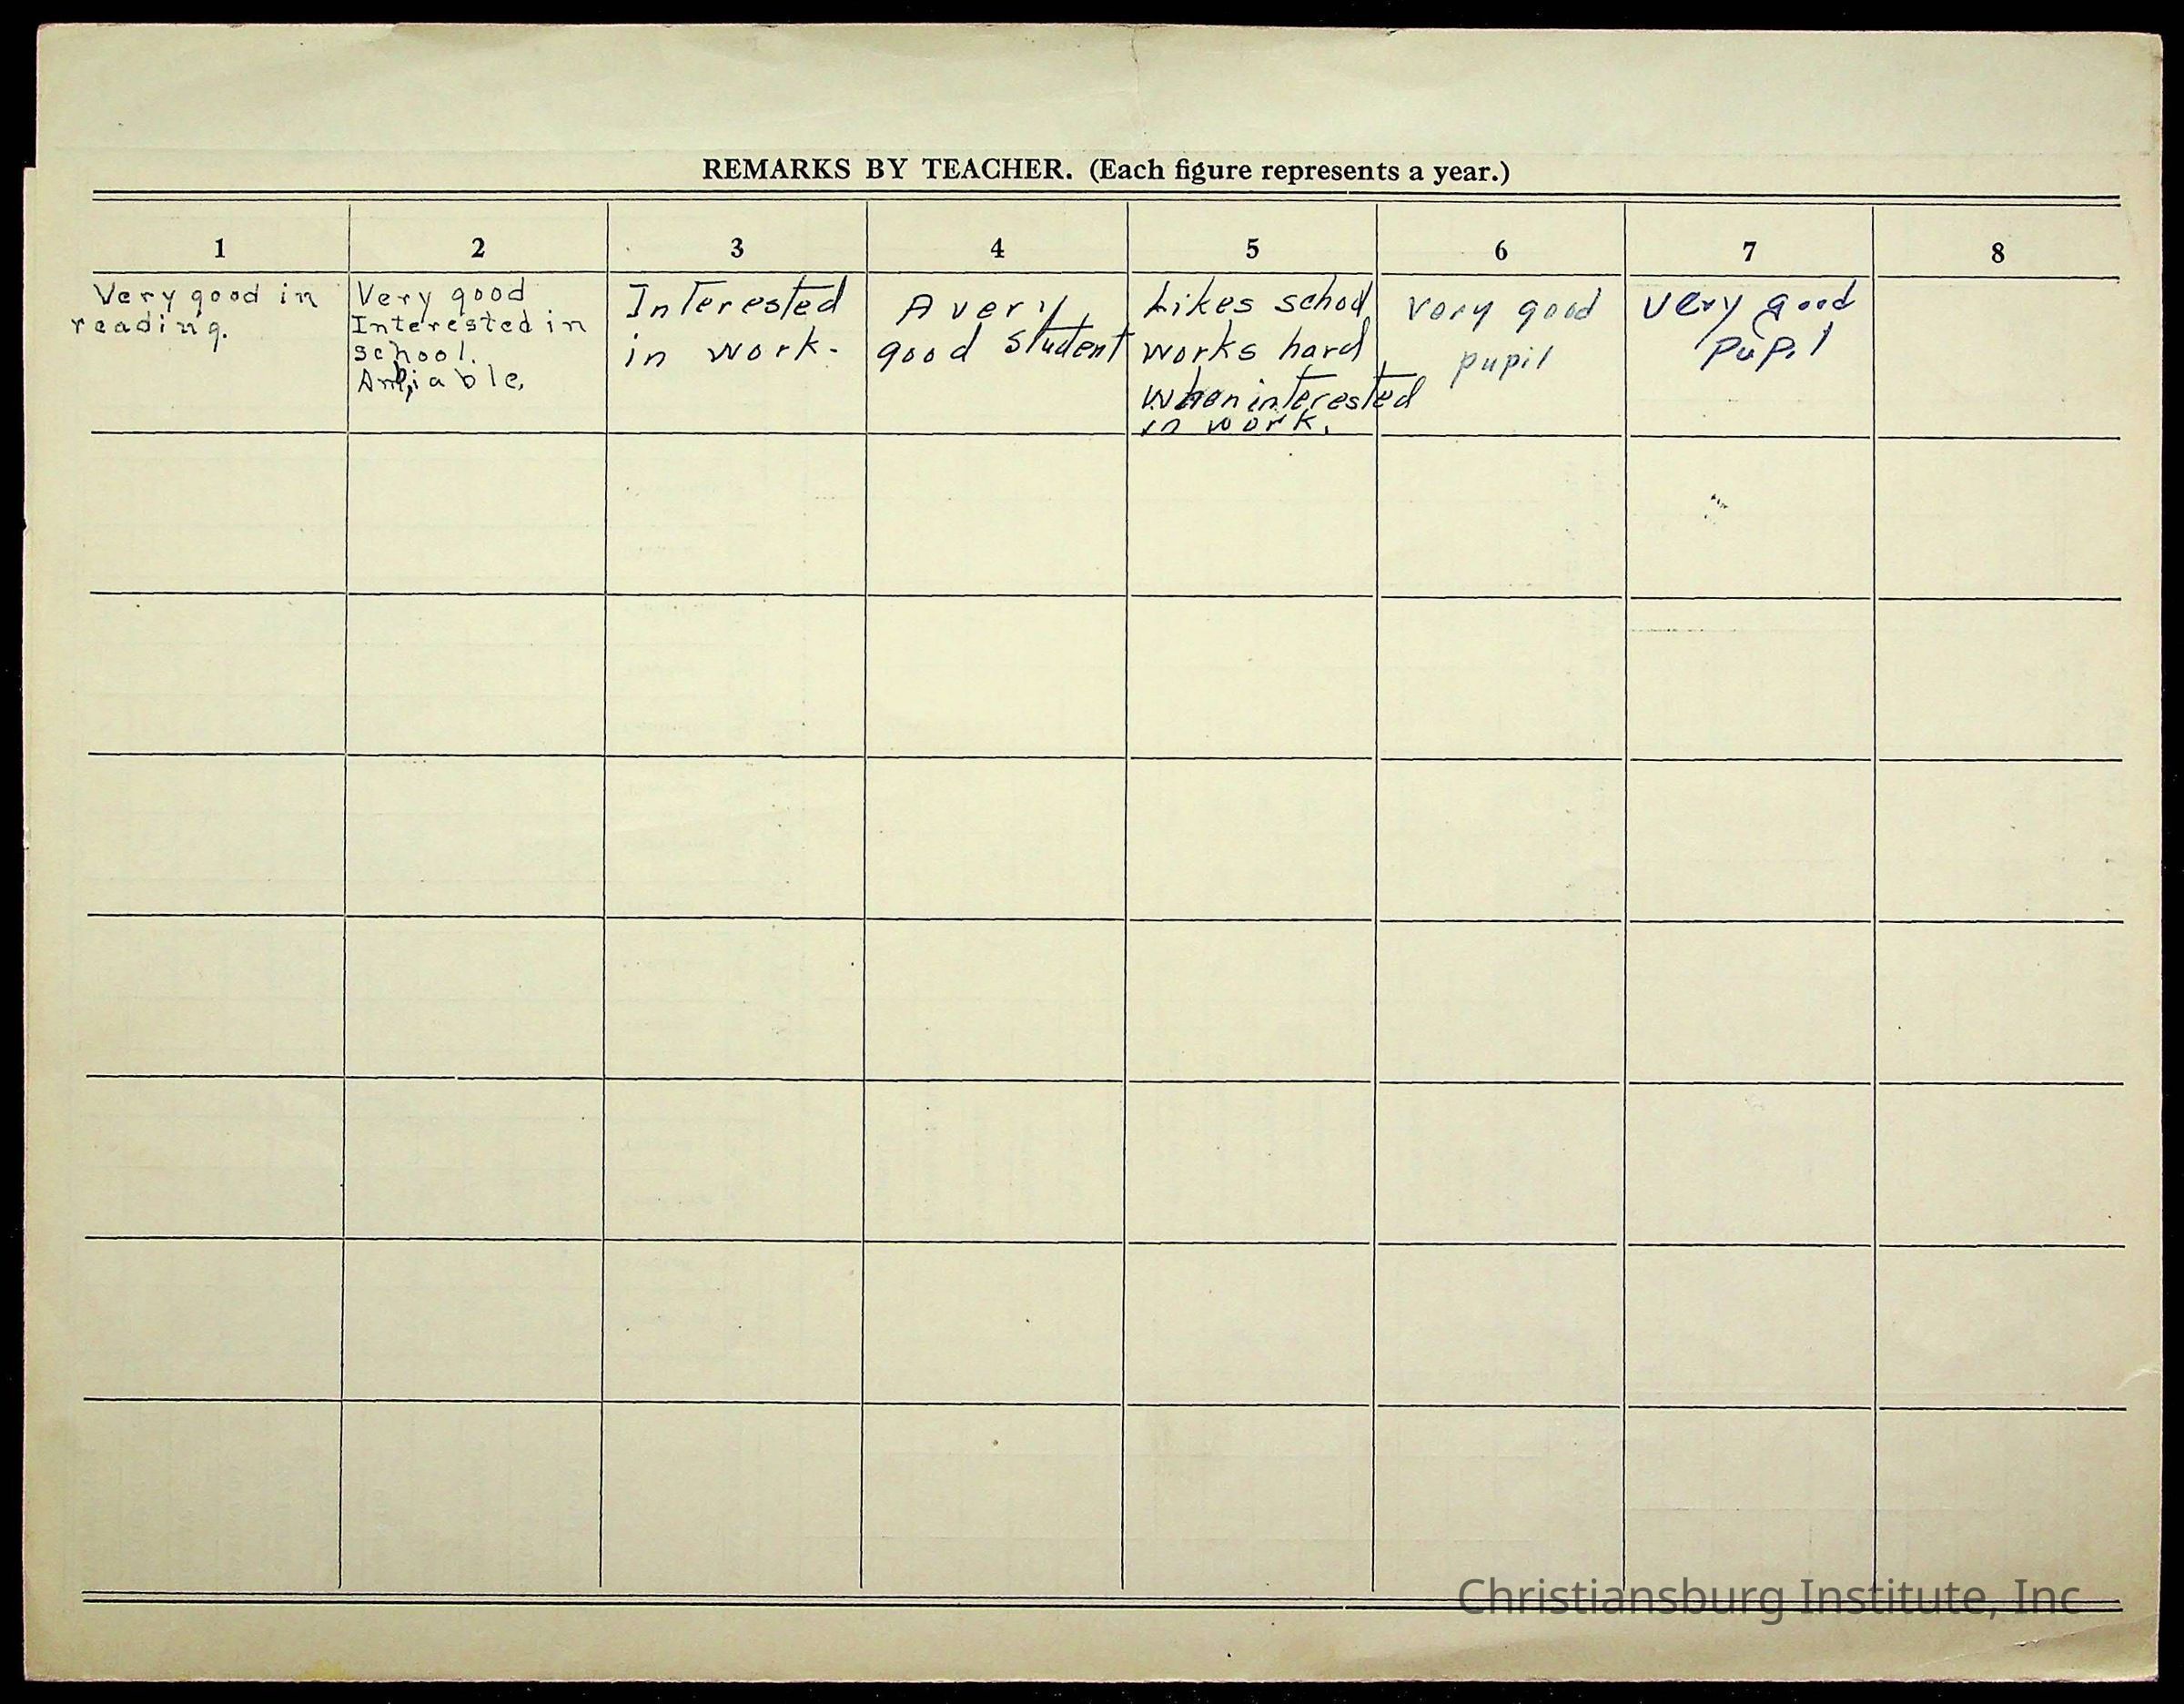 REMARKS BY TEACHER. (Each figure represents a year.)
1 2 3 4 5 6 7 8
Very good in
reading.
Very good
Interested in
school.
Amiable.
Interested
in work.
A very
good student
Likes school
works hard
when interested
in work.
very good
pupil
very good
pupil
Christiansburg Institute, Inc